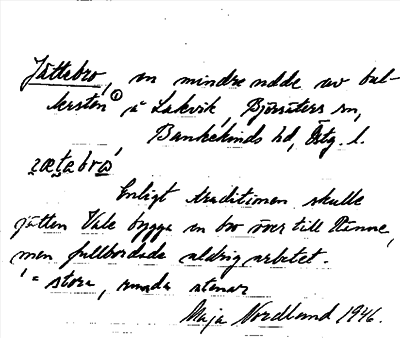 Jättebro, en mindre udde av bul-
lersten ① i Lakvik, Björsäters sn,
Bankekinds hd, Östg. l.
Enligt traditionen skulle
jätten Vale bygga en bro över till Rinne,
men fullbordade aldrig arbetet.
= stora, runda stenar
Maja Nordlund 1946.